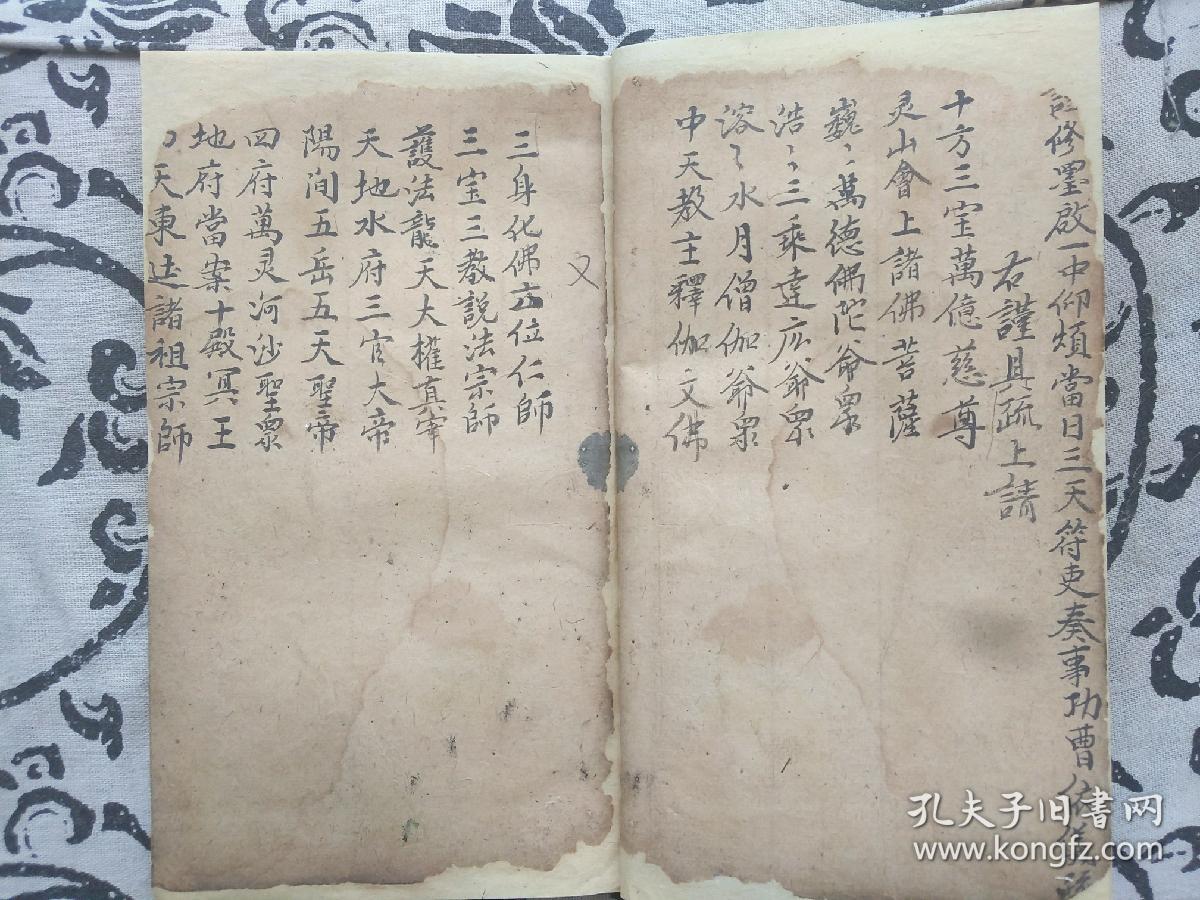 修墨啟一中仰煩當日三天符吏奏事功曹依
右謹具疏上請
十方三宝萬億慈尊
灵山會上諸佛菩薩
巍〻萬德佛陀爺眾
浩〻三乘達庅爺眾
溶〻水月僧伽爺眾
中天教主釋伽文佛
又
三身化佛六位仁師
三宝三教說法宗師
護法龍天大權真宰
天地水府三官大帝
陽洞五岳五天聖帝
四府萬灵河沙聖眾
地府當案十殿冥王
天東土諸祖宗師
孔夫子旧书网
www.kongfz.com